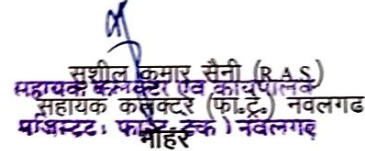 सुशील कुमार सैनी (R.A.S.)
सहायक कलक्टर एवं कार्यपालक
सहायक कलक्टर (फा.ट्रे.) नवलगढ
मजिस्ट्रेट (फास्ट ट्रेक) नवलगढ
मोहर